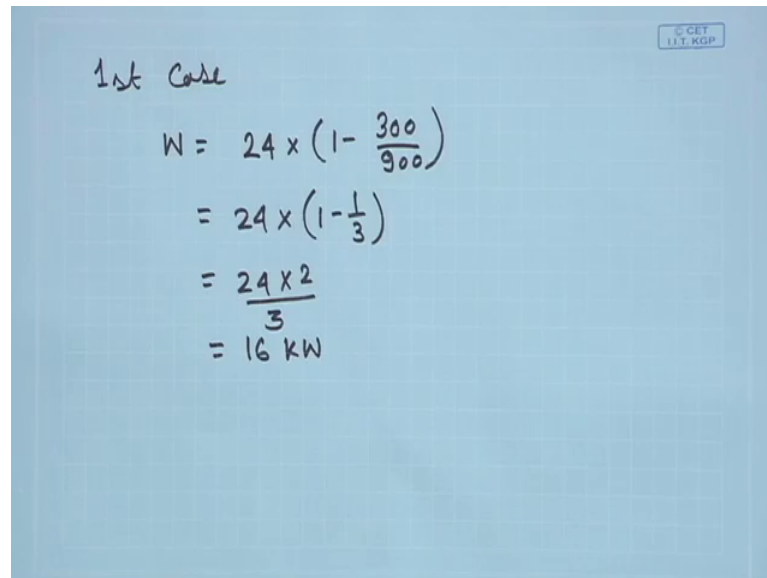 © CET
I.I.T. KGP
1st Case
W = 24 × (1 - 300/900)
= 24 × (1 - 1/3)
= 24 × 2/3
= 16 KW